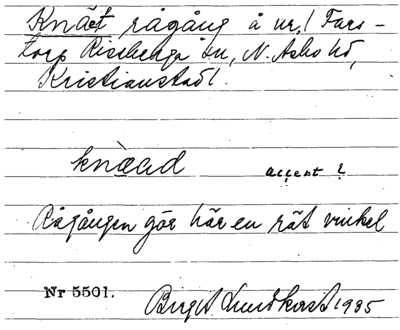 Knäet rågång å nr 1 Fars-
torp Riseberga sn, N. Åsbo hd,
Kristianstad l.
knæad accent 2
Rågången gör här en rät vinkel
Nr 5501.
Birgit Lundkvist 1935